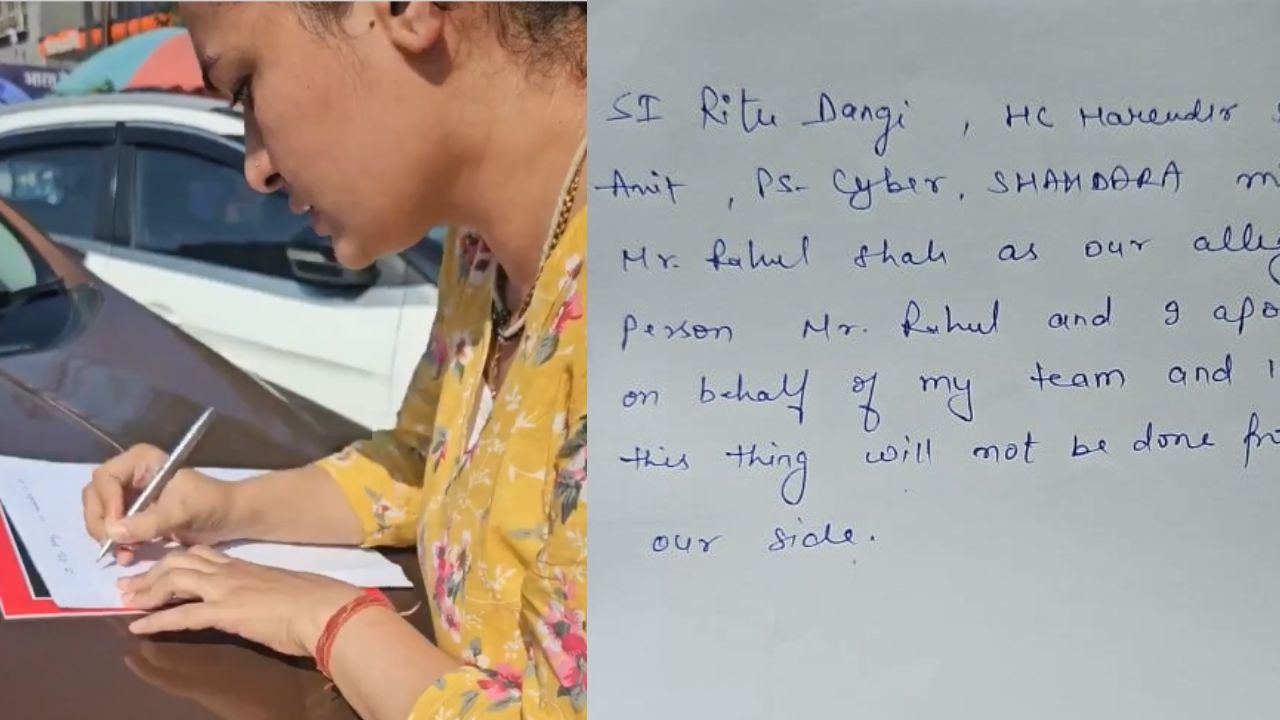 SI Ritu Dangi, HC Harender
Amit, PS- Cyber, SHAHDARA
Mr. Rahul Shah as our
person Mr. Rahul and I
on behalf of my team and
this thing will not be done
our side.